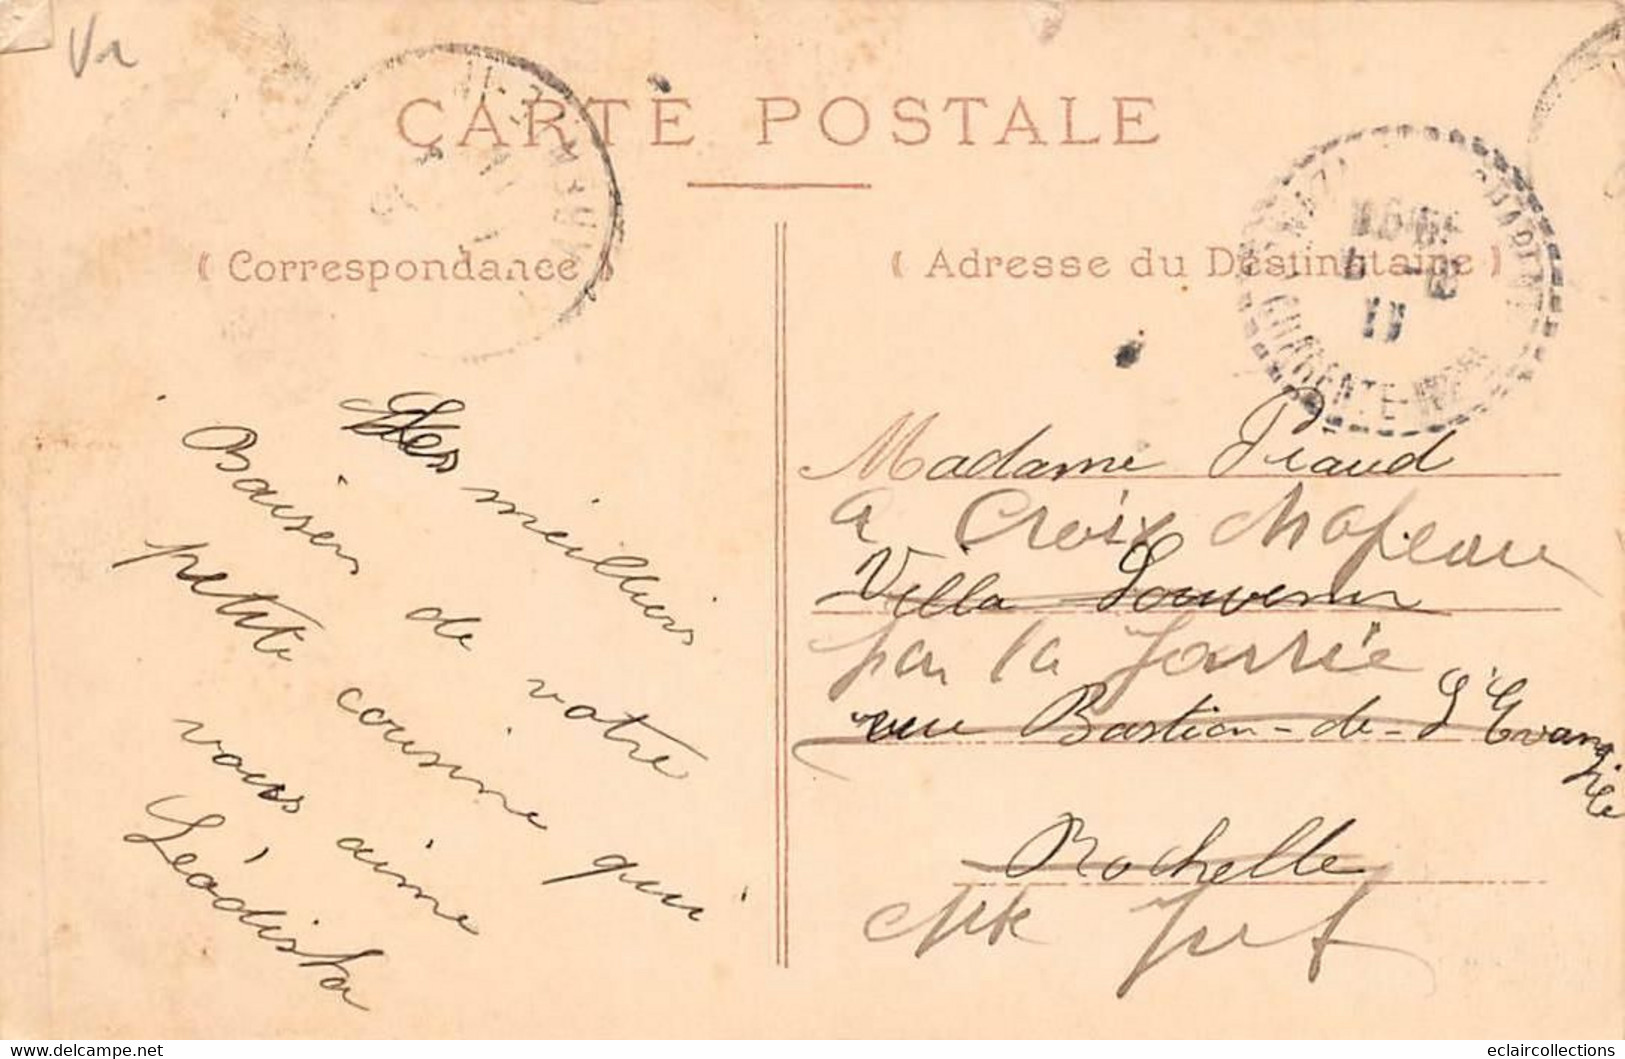 CARTE POSTALE
( Correspondance )
Les meilleurs
Baisers de votre
petite cousine qui
vous aime
Léodista
( Adresse du Destinataire )
CHARENTE-INFRE
11
Madame Piaud
a Croix Chapeau
Villa Souvenir
par la Jarrie
rue Bastion-de-L'Evangile
Rochelle
delcampe.net
eclaircollections